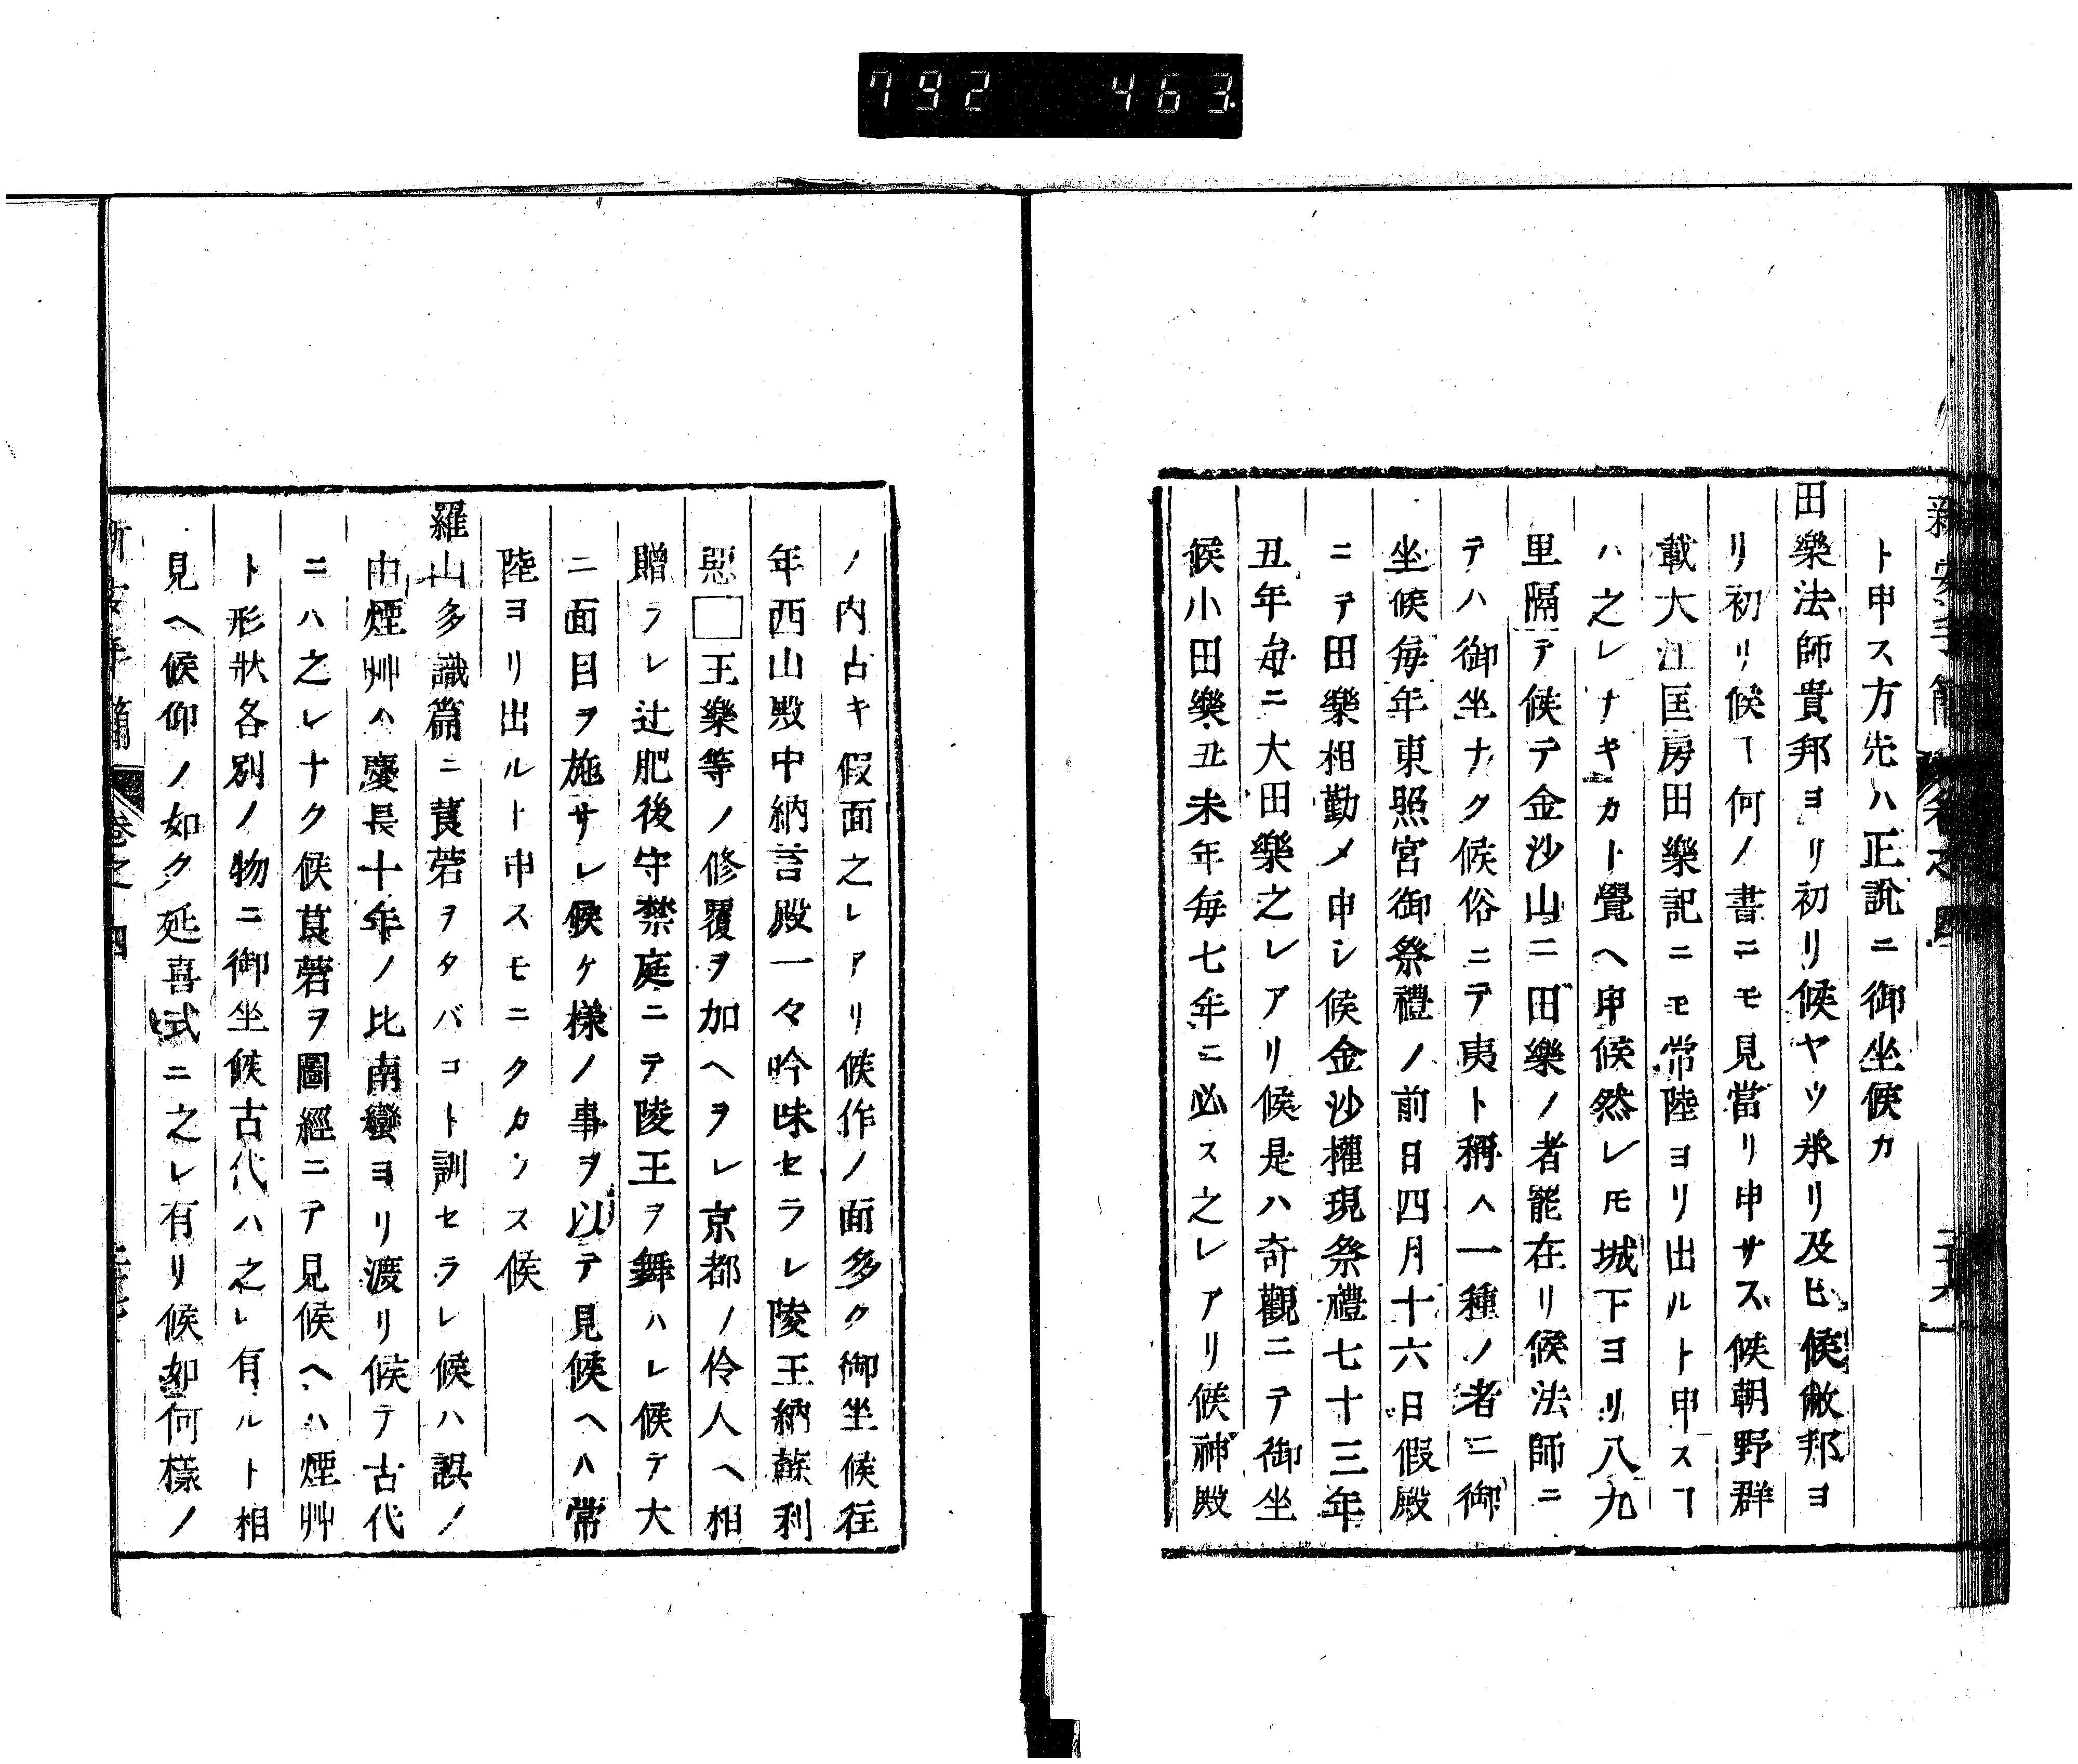 792 463.
ト申ス方先ハ正說ニ御坐候カ
田樂法師貴邦ヨリ初リ候ヤウ承リ及ヒ候敝邦ヨ
リ初リ候ヿ何ノ書ニモ見當リ申サス候朝野群
載大江匡房田樂記ニモ常陸ヨリ出ルト申スヿ
ハ之レナキカト覺ヘ申候然レ𪜈城下ヨリ八九
里隔テ候テ金沙山ニ田樂ノ者能在リ候法師ニ
テハ御坐ナク候俗ニテ夷ト稱ヘ一種ノ者ニ御
坐候每年東照宮御祭禮ノ前日四月十六日假殿
ニテ田樂相勤メ申シ候金沙權現祭禮七十三年
丑年每ニ大田樂之レアリ候是ハ奇觀ニテ御坐
候小田樂丑未年每七年ニ必ス之レアリ候神殿
ノ内古キ假面之レアリ候作ノ面多ク御坐候往
年西山殿中納言殿一々吟味セラレ陵王納蘇利
惡□王樂等ノ修覆ヲ加ヘヲレ京都ノ伶人ヘ相
贈ラレ辻肥後守禁庭ニテ陵王ヲ舞ハレ候テ大
ニ面目ヲ施サレ候ケ樣ノ事ヲ以テ見候ヘハ常
陸ヨリ出ルト申スモニクカンス候
羅山多識篇ニ莨菪ヲタバコト訓セラレ候ハ誤ノ
由煙艸ハ慶長十年ノ比南蠻ヨリ渡リ候テ古代
ニハ之レナク候莨菪ヲ圖經ニテ見候ヘハ煙艸
ト形狀各別ノ物ニ御坐候古代ハ之レ有ルト相
見ヘ候仰ノ如ク延喜式ニ之レ有リ候如何樣ノ
卷之四